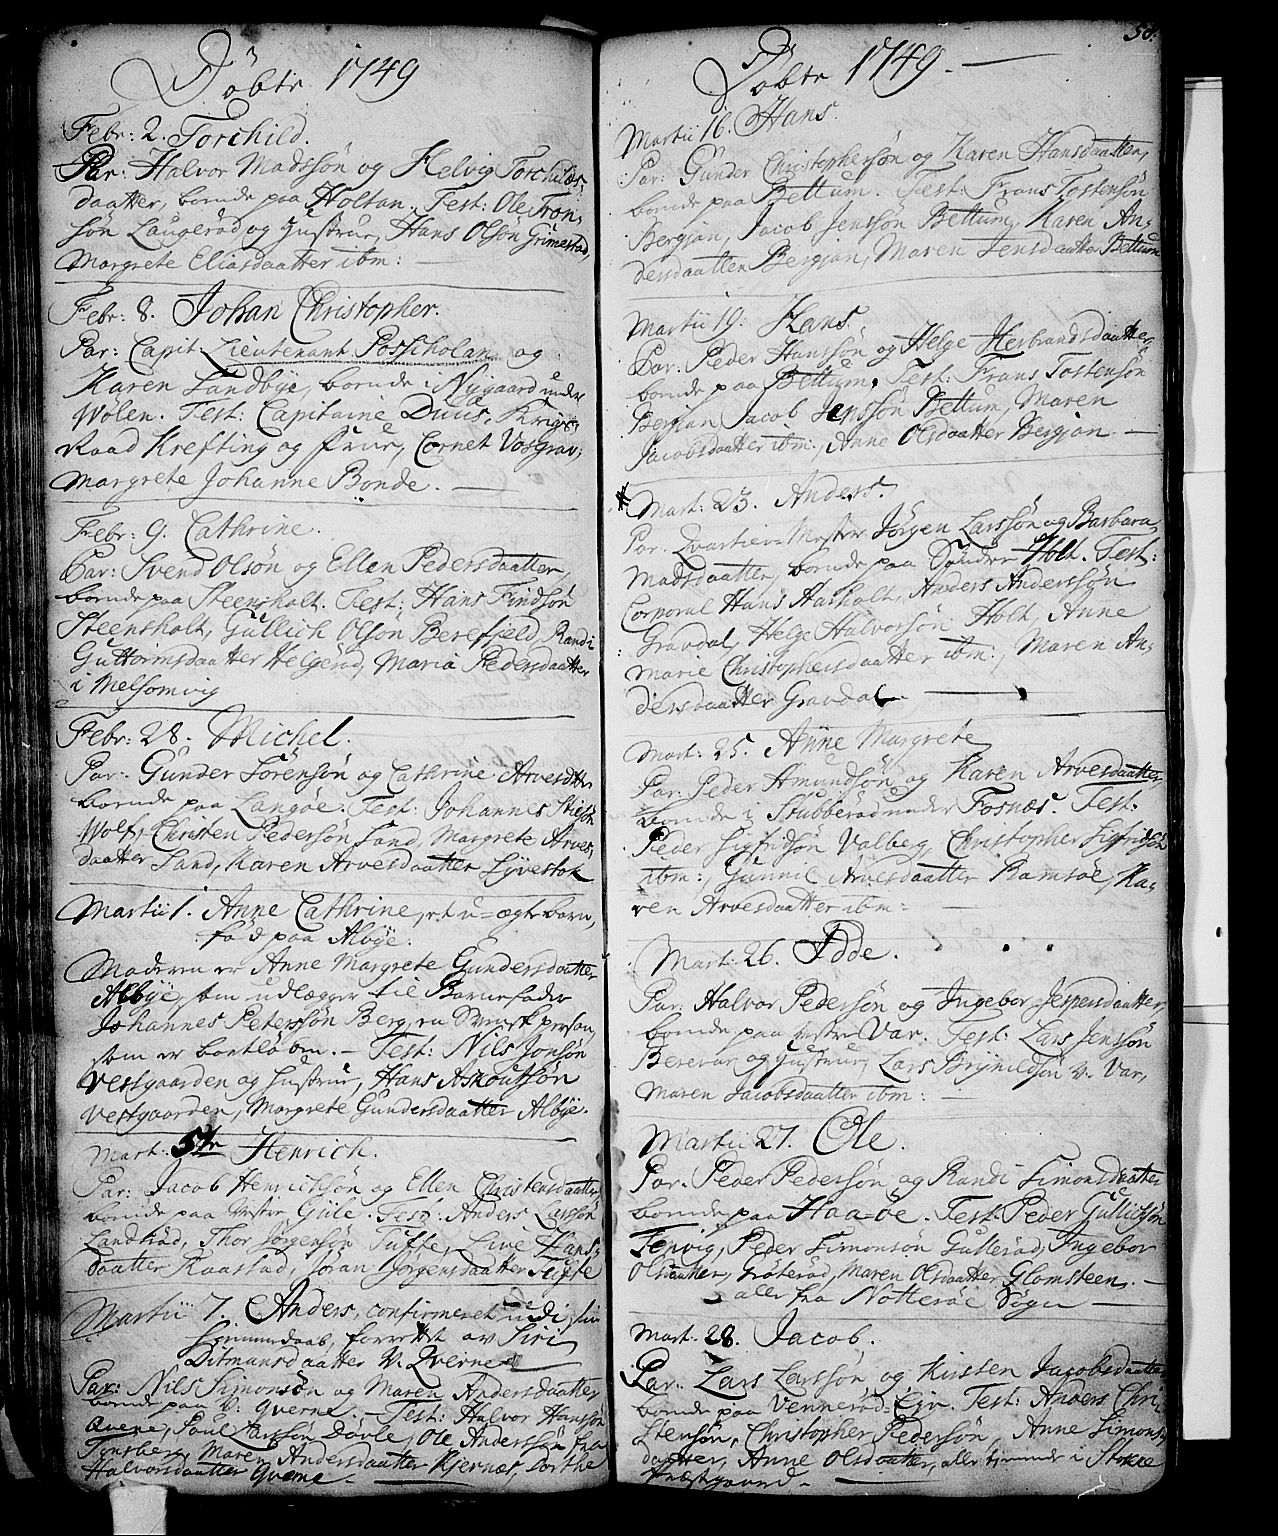 Döbte 1749
Febr: 2. Torchild.
Par: Halvor Madssøn og Helvig Torchilds,
daatter, boende paa Holtan. Test: Ole Tron,
søn Laugerød og Hustrue, Hans Olsøn Grimestad,
Margrete Eliasdaatter ibm:
Febr: 8. Johan Christopher.
Par: Capit. Lieutenant Posscholan og
Karen Sandbye, boende i Nygaard under
Wolen. Test: Capitaine Duus, Krigs-
Raad Krefting og Frue, Cornet Vosgrav,
Margrete Johanne Bonde.
Febr: 9. Cathrine.
Par: Svend Olsøn og Ellen Pedersdaatter,
boende paa Steensholt. Test: Hans Findsøn
Steensholt, Gullich Olsøn Berefjeld, Randi
Guttormsdaatter Helgerød, Maria Pedersdaatter
i Melsomvig
Febr: 28. Michel.
Par: Gunder Sörensøn og Cathrine Arvesdtter
boende paa Langöe. Test: Johannes
Wolf, Christen Pedersøn Sand, Margrete Arves,
daatter Sand, Karen Arvesdaatter Lyvestok
Martii 1. Anne Cathrine, et u=ægte barn,
fød paa Albye.
Moderen er Anne Margrete Gundersdaatter
Albye, som udlægger til Barnefader
Johannes Peterssøn Berg, en Svensk person,
som er bortløben. - Test: Nils Jonsøn
Vestgaarden og Hustrue, Hans Askoutsøn
Vestgaarden, Margrete Gundersdaatter Albye.
Mart: 5te Henrich.
Par: Jacob Henrichsøn og Ellen Christensdaatter,
boende paa Vestre Gule. Test: Anders Larssøn
Landsrød, Thor Jörgensøn Tuffte, Live Hans,
daatter Raastad, Joran Jörgensdaatter Tuffte
Martii 7. Anders, confirmeret
hiemmedaab, forrettet av Siri
Ditmansdaatter V. Qverne
Par: Nils Simonsøn og Maren Andersdaatter
boende paa V. Qverne. - Test: Halvor Hanssøn
Qverne, Paul Larssøn Døvle, Ole Anderssøn fra
Tønsberg, Maren Andersdaatter Kjernæs, Dorthe
Halvorsdaatter Qverne -
50.
Döbte 1749. -
Martii 16. Hans.
Par: Gunder Christophersøn og Karen Hansdaatter,
boende paa Bettum. Test: Frans Tostensøn
Bergjan, Jacob Jenssøn Bettum, Karen An,
dersdaatter Bergjan, Maren Jensdaatter Bettum
Martii 19. Hans
Par: Peder Hanssøn og Helge Herbrandsdaatter
boende paa Bettum. Test: Frans Tostensøn
Bergan Jacob Jenssøn Bettum, Maren
Jacobsdaatter ibm:, Anne Olsdaatter Bergjan -
Mart: 23. Anders.
Par. Qvarteer=Mester Jørgen Larssøn og Barbara
Madsdaatter, boende paa Sønder Holt. Test:
Corporal Hans Aasholt, Anders Anderssøn
Gravdal, Helge Halvorsøn Holt, Anne
Marie Christophersdaatter ibm:, Maren An,
dersdaatter Gravdal
Mart: 25. Anne Margrete
Par: Peder Amundsøn og Karen Arvesdaatter,
boende i Stubberød under Fosnæs. Test:
Peder Sigfridsøn Valberg, Christopher Sigfridsøn
ibm:, Gunnil Arvesdaatter Ramsöe, Ka,
ren Arvesdaatter ibm:
Mart: 26. Idde.
Par: Halvor Pedersøn og Ingebor Jespersdaatter,
boende paa Vestre Var. Test: Lars Jenssøn
Berevar og Hustrue, Lars Brynildsøn V. Var,
Maren Jacobsdaatter ibm:
Martii 27. Ole.
Par: Peder Pedersøn og Randi Simonsdaatter
boende paa Haa=öe. Test: Peder Gullichsøn
Tenvig, Peder Simonsøn Gullerød, Ingebor
Olsdaatter, Grøterød, Maren Olsdaatter Glomsteen. -
alle fra Notterøe Sogn
Mart: 28. Jacob.
Par: Lars Larssøn og Kirsten Jacobsdaatter
boende paa Vennerød=Eje. Test: Anders Chri,
stensøn, Christopher Pedersøn, Anne Simons,
daatter, Anne Olsdaatter, alle tjenende i Stokke
Præstgaard -